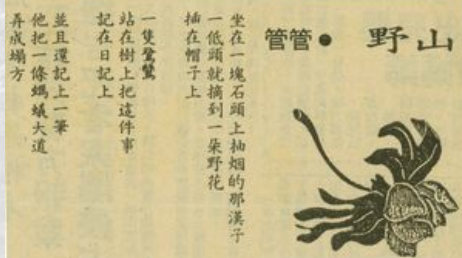 山野●管管
坐在一塊石頭上抽烟的那漢子
一低頭就摘到一朵野花
插在帽子上
一隻鷺鷥
站在樹上把這件事
記在日記上
並且還記上一筆
他把一條螞蟻大道
弄成塌方